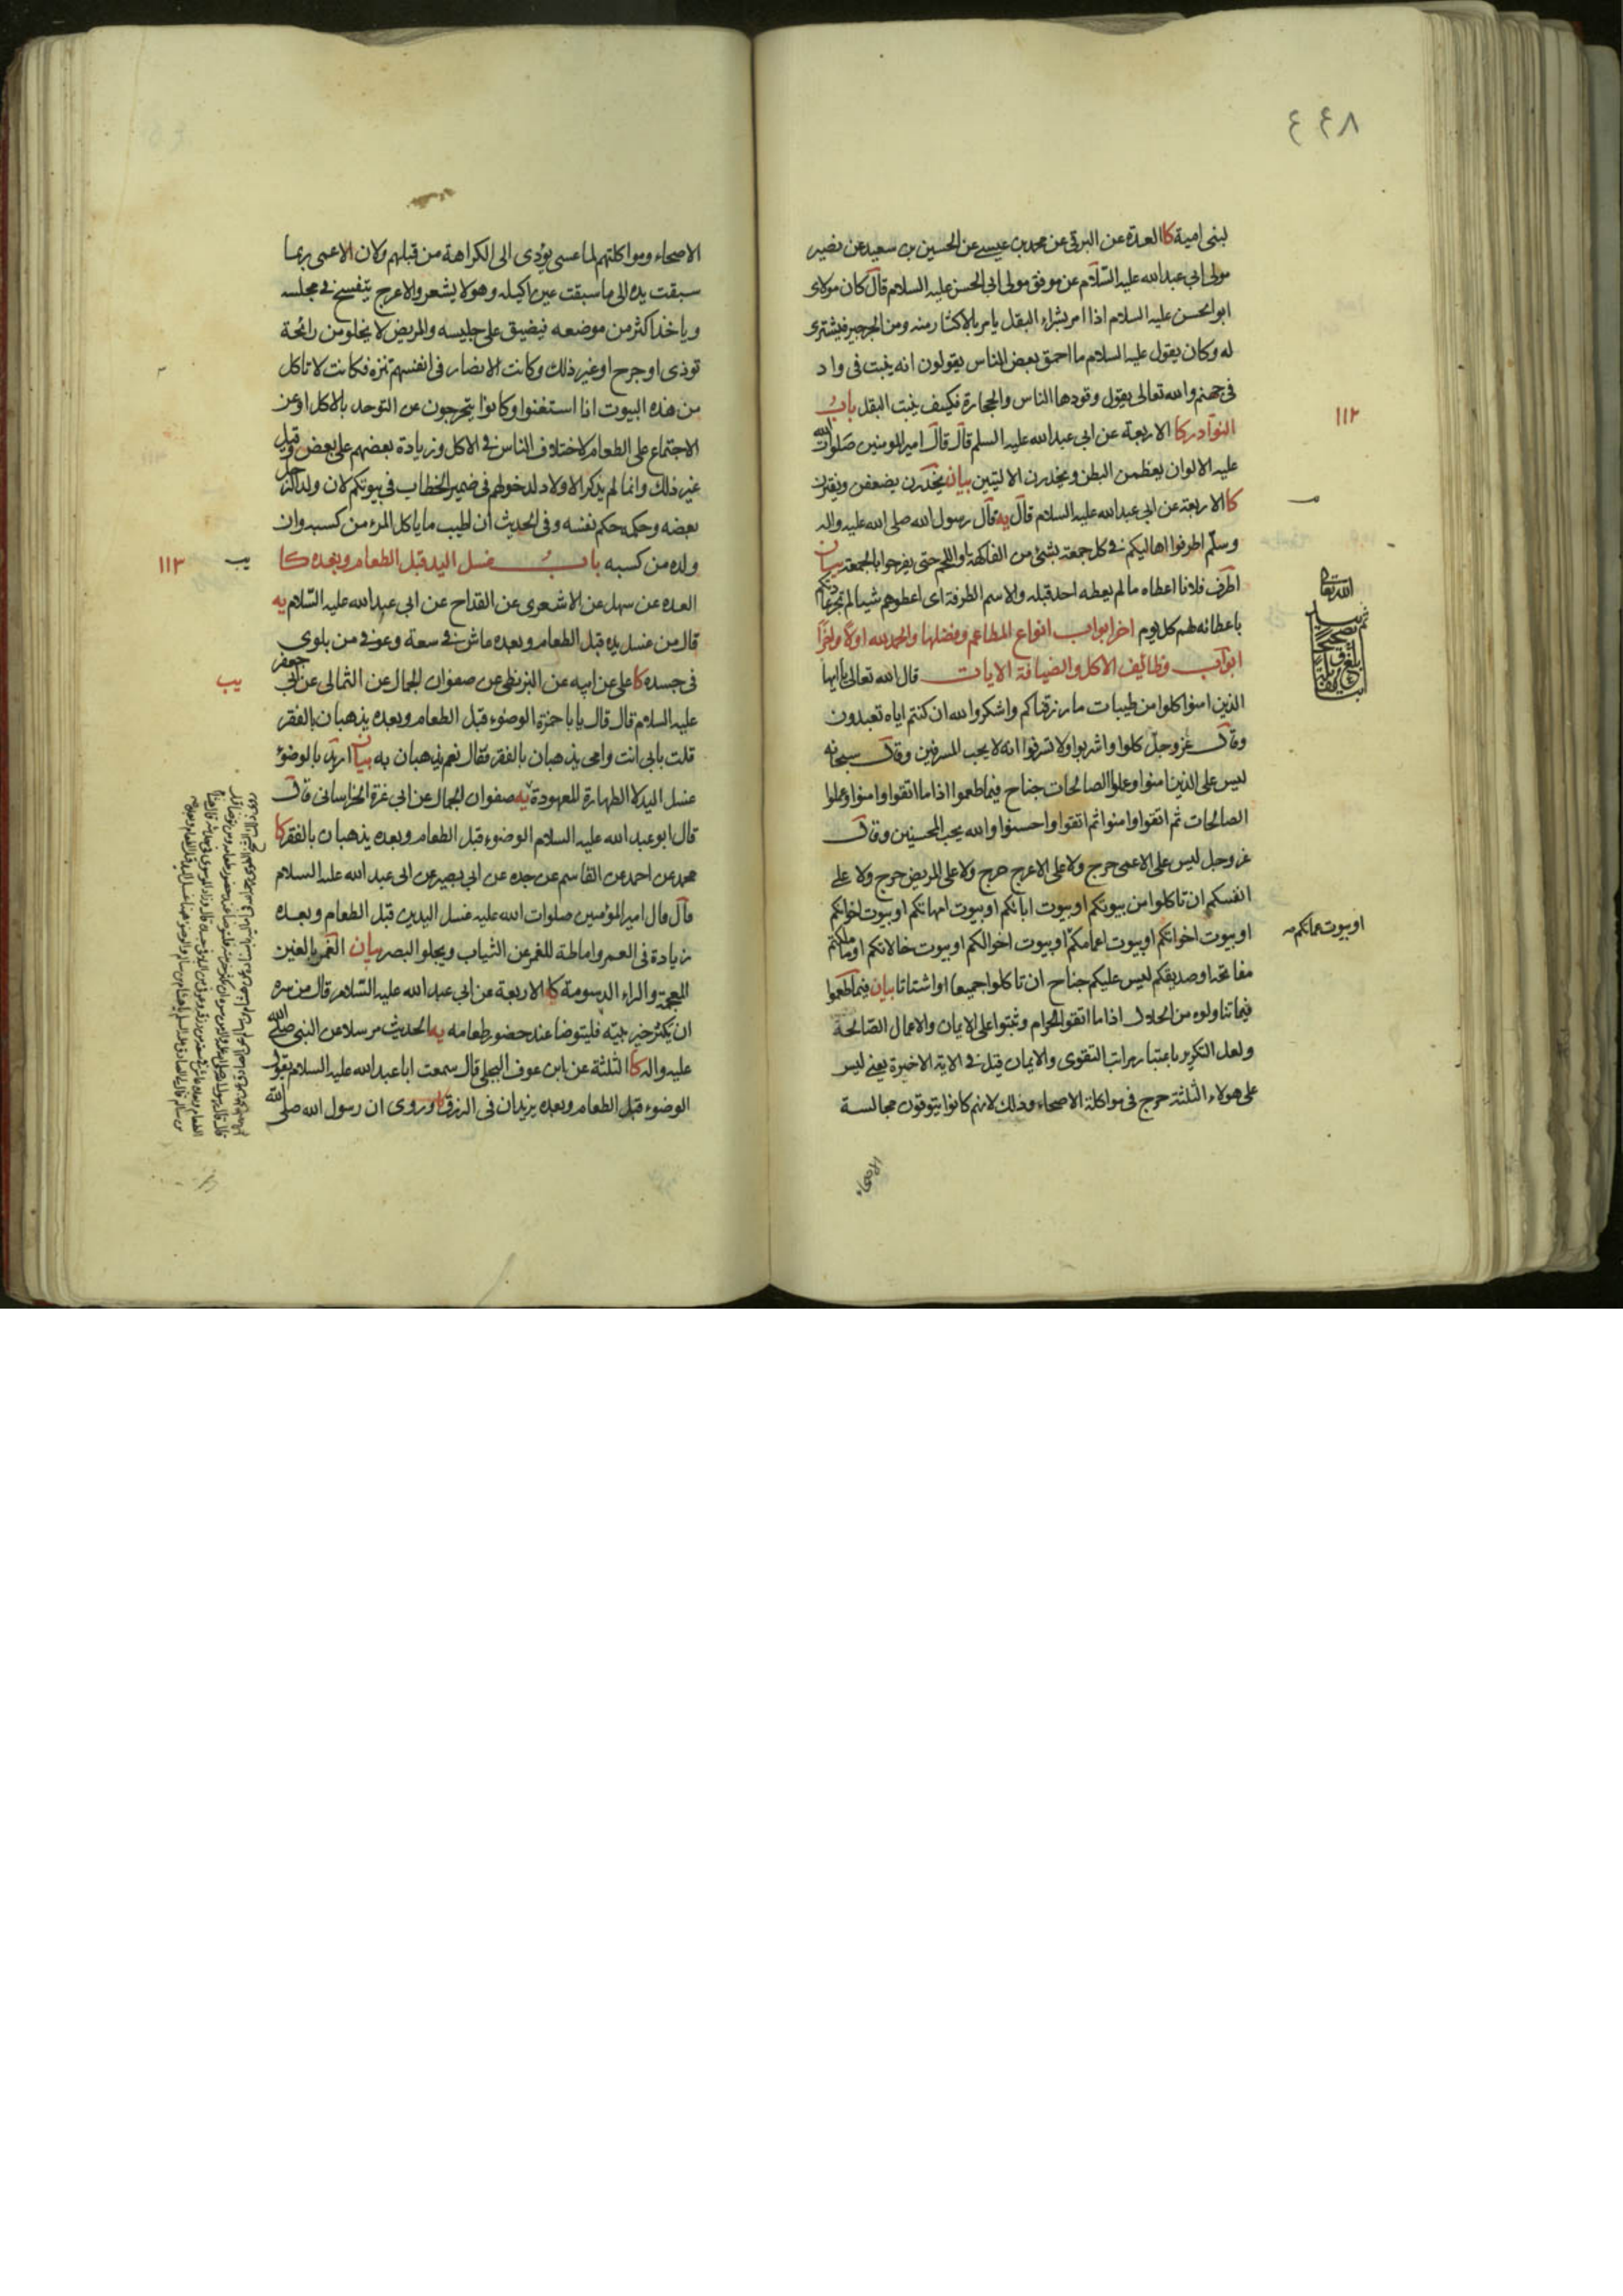 ٤٤٨
لبنى امية كا العدة عن البرقى عن محمد بن عيسى عن الحسين بن سعيد عن نصير
مولى ابي عبدالله عليه السلام عن موفق مولى ابي الحسن عليه السلام قال كان مولاى
ابوالحسن عليه السلام اذا امر بشراء البقل يامر بالاكثار منه ومن الجرجير فيشترى
له وكان يقول عليه السلام ما احمق بعض الناس يقولون انه ينبت فى واد
فى جهنم والله تعالى يقول وقودها الناس والحجارة فكيف ينبت البقل باب
١١٢
النوادر كا الاربعة عن ابي عبدالله عليه السلم قال قال امير المومنين صلوات الله
عليه الالوان يعظمن البطن ويخدرن الاليتين بيان يخدرن يضعفن ويفترن
كا الاربعة عن ابي عبدالله عليه السلام قال يه قال رسول الله صلى الله عليه واله
وسلم اطرفوا اهاليكم فى كل جمعة بشئ من الفاكهة او اللحم حتى يفرحوا بالجمعة بيان
اطرف فلانا اعطاه ما لم يعطه احد قبله والاسم الطرفة اى اعطوهم شيئا لم تجر عادتكم
باعطائه لهم كل يوم اخر ابواب انواع المطاعم وفضلها والحمد لله اولا واخرا
ابواب وظائف الاكل والضيافة الايات قال الله تعالى يا ايها
الذين امنوا كلوا من طيبات ما رزقناكم واشكروا لله ان كنتم اياه تعبدون
وقال عز وجل كلوا واشربوا ولا تسرفوا انه لا يحب المسرفين وقال سبحانه
ليس على الذين امنوا وعملوا الصالحات جناح فيما طعموا اذا ما اتقوا وامنوا وعملوا
الصالحات ثم اتقوا وامنوا ثم اتقوا واحسنوا والله يحب المحسنين وقال
عز وجل ليس على الاعمى حرج ولا على الاعرج حرج ولا على المريض حرج ولا على
انفسكم ان تاكلوا من بيوتكم او بيوت ابائكم او بيوت امهاتكم او بيوت اخوانكم
او بيوت اخواتكم او بيوت اعمامكم او بيوت اخوالكم او بيوت خالاتكم او ما ملكتم
او بيوت عماتكم
مفاتحه او صديقكم ليس عليكم جناح ان تاكلوا جميعا او اشتاتا بيان فيما طعموا
فيما تناولوه من الحلال اذا ما اتقوا الحرام وثبتوا على الايمان والاعمال الصالحة
ولعل التكرير باعتبار مراتب التقوى والايمان قيل فى الاية الاخيرة يعنى ليس
على هولاء الثلثة حرج فى مواكلة الاصحاء وذلك لانهم كانوا يتوقون مجالسة
الاصحاء
الاصحاء ومواكلتهم لما عسى يؤدى الى الكراهة من قبلهم ولان الاعمى ربما
سبقت يده الى ما سبقت عين اكيله وهو لا يشعر والاعرج يتفسح فى مجلسه
وياخذ اكثر من موضعه فيضيق على جليسه والمريض لا يخلو من رائحة
توذى او جرح او غير ذلك وكانت الانصار فى انفسهم تنزه فكانت لا تاكل
من هذه البيوت اذا استغنوا وكانوا يتحرجون عن التوحد بالاكل او عن
الاجتماع على الطعام لاختلاف الناس فى الاكل وزيادة بعضهم على بعض وقيل
غير ذلك وانما لم يذكر الاولاد لدخولهم فى ضمير الخطاب فى بيوتكم لان ولد الرجل
بعضه وحكمه حكم نفسه وفى الحديث ان اطيب ما ياكل المرء من كسبه وان
ولده من كسبه باب غسل اليد قبل الطعام وبعده كا
يب
١١٣
العدة عن سهل عن الاشعرى عن القداح عن ابى عبدالله عليه السلام يه
قال من غسل يده قبل الطعام وبعده عاش فى سعة وعوفى من بلوى
فى جسده كا على عن ابيه عن البزنطى عن صفوان الجمال عن الثمالى عن ابى جعفر
يب
عليه السلام قال قال يا با حمزة الوضوء قبل الطعام وبعده يذهبان بالفقر
قلت بابى انت وامى يذهبان بالفقر فقال نعم يذهبان به بيان اريد بالوضوء
غسل اليد لا الطهارة المعهودة يه صفوان الجمال عن ابى غرة الخراسانى قال
قال ابو عبد الله عليه السلام الوضوء قبل الطعام وبعده يذهبان بالفقر كا
محمد عن احمد عن القاسم عن جده عن ابى بصير عن ابى عبد الله عليه السلام
قال قال امير المؤمنين صلوات الله عليه غسل اليدين قبل الطعام وبعده
زيادة فى العمر واماطة للغمر عن الثياب ويجلو البصر بيان الغمر بالغين
المعجمة والراء الدسومة كا الاربعة عن ابى عبد الله عليه السلام قال من سره
ان يكثر خير بيته فليتوضا عند حضور طعامه يه الحديث مرسلا عن النبى صلى الله
عليه واله كا الثلثة عن ابن عوف البجلى قال سمعت ابا عبد الله عليه السلام يقول
الوضوء قبل الطعام وبعده يزيدان فى الرزق كا وروى ان رسول الله صلى الله